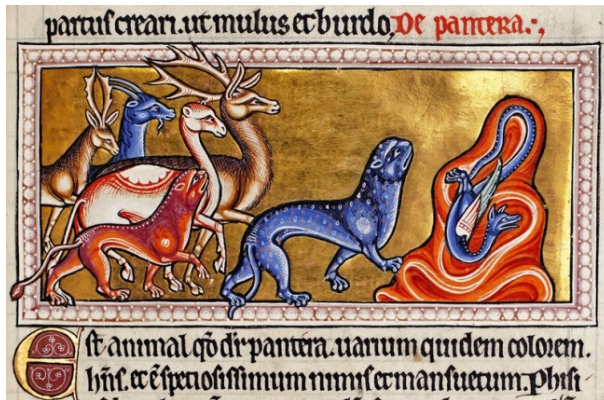 partus creari. ut mulus et burdo, De pantera.
Est animal qd dr pantera. uarium quidem colorem.
hns. et e speciosissimum nimis et mansuetum. Phisi